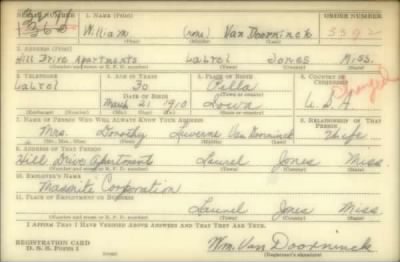 1. NAME (Print)
ORDER NUMBER
William (nmi) Van Doorninck
3392
(First) (Middle) (Last)
2. ADDRESS (Print)
Hill Drive Apartments Laurel Jones Miss.
(Number and street or R. F. D. number) (Town) (County) (State)
3. TELEPHONE
4. AGE IN YEARS
5. PLACE OF BIRTH
6. COUNTRY OF CITIZENSHIP
Laurel
30
Pella
DATE OF BIRTH
(Town or county)
March 21 1910
Iowa
U.S.A.
(Exchange) (Number)
(Mo.) (Day) (Yr.)
(State or country)
7. NAME OF PERSON WHO WILL ALWAYS KNOW YOUR ADDRESS
8. RELATIONSHIP OF THAT PERSON
Mrs. Dorothy Luverne Van Doorninck Wife
(Mr., Mrs., Miss) (First) (Middle) (Last)
9. ADDRESS OF THAT PERSON
Hill Drive Apartments Laurel Jones Miss.
(Number and street or R. F. D. number) (Town) (County) (State)
10. EMPLOYER'S NAME
Masonite Corporation
11. PLACE OF EMPLOYMENT OR BUSINESS
Laurel Jones Miss
(Number and street or R. F. D. number) (Town) (County) (State)
I AFFIRM THAT I HAVE VERIFIED ABOVE ANSWERS AND THAT THEY ARE TRUE.
REGISTRATION CARD
D. S. S. Form 1
Wm. Van Doorninck
(Registrar's signature)